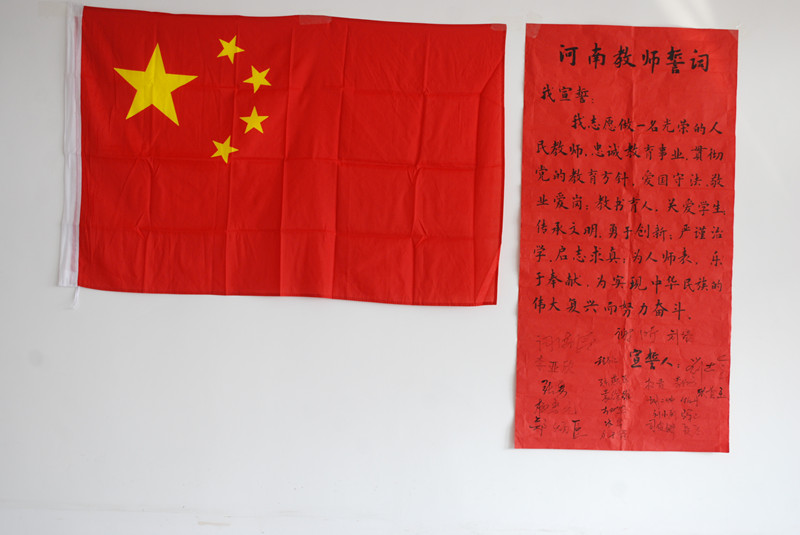 河南教师誓词
我宣誓：
我志愿做一名光荣的人
民教师，忠诚教育事业，贯彻
党的教育方针，爱国守法，敬
业爱岗；教书育人，关爱学生，
传承文明，勇于创新；严谨治
学，启志求真；为人师表，乐
于奉献，为实现中华民族的
伟大复兴而努力奋斗、
宣誓人：